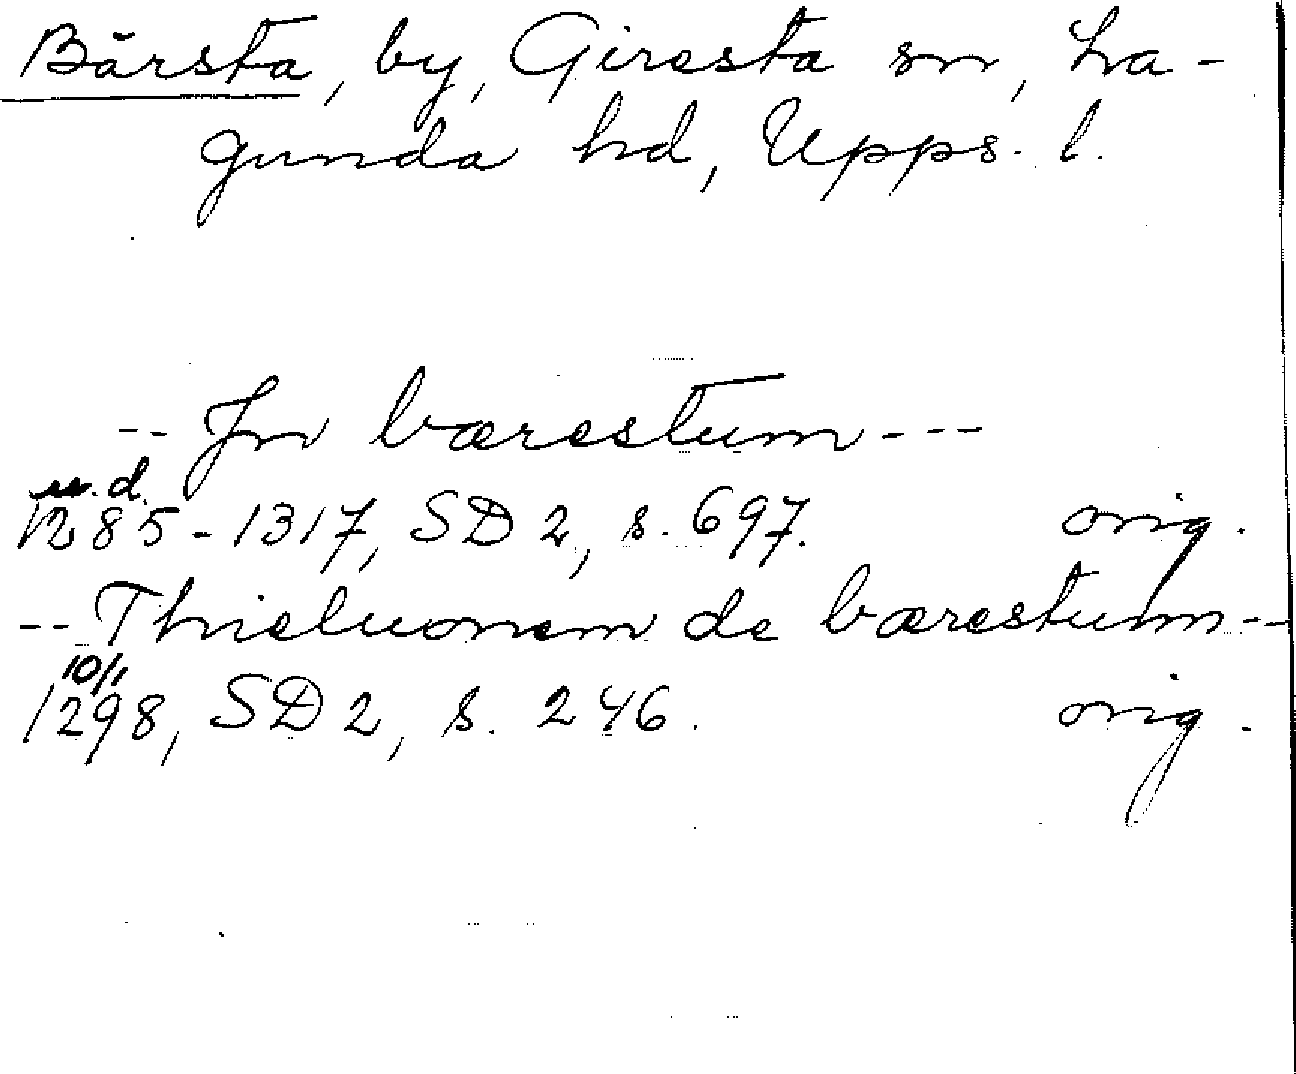 Bärsta, by, Giresta sn, La-
gunda hd, Upps. l.
-- Jn bærestum ---
u.d.
1285-1317, SD 2, s. 697. orig.
-- Thieluonem de bærestum --
10/1
1298, SD 2, s. 246. orig.